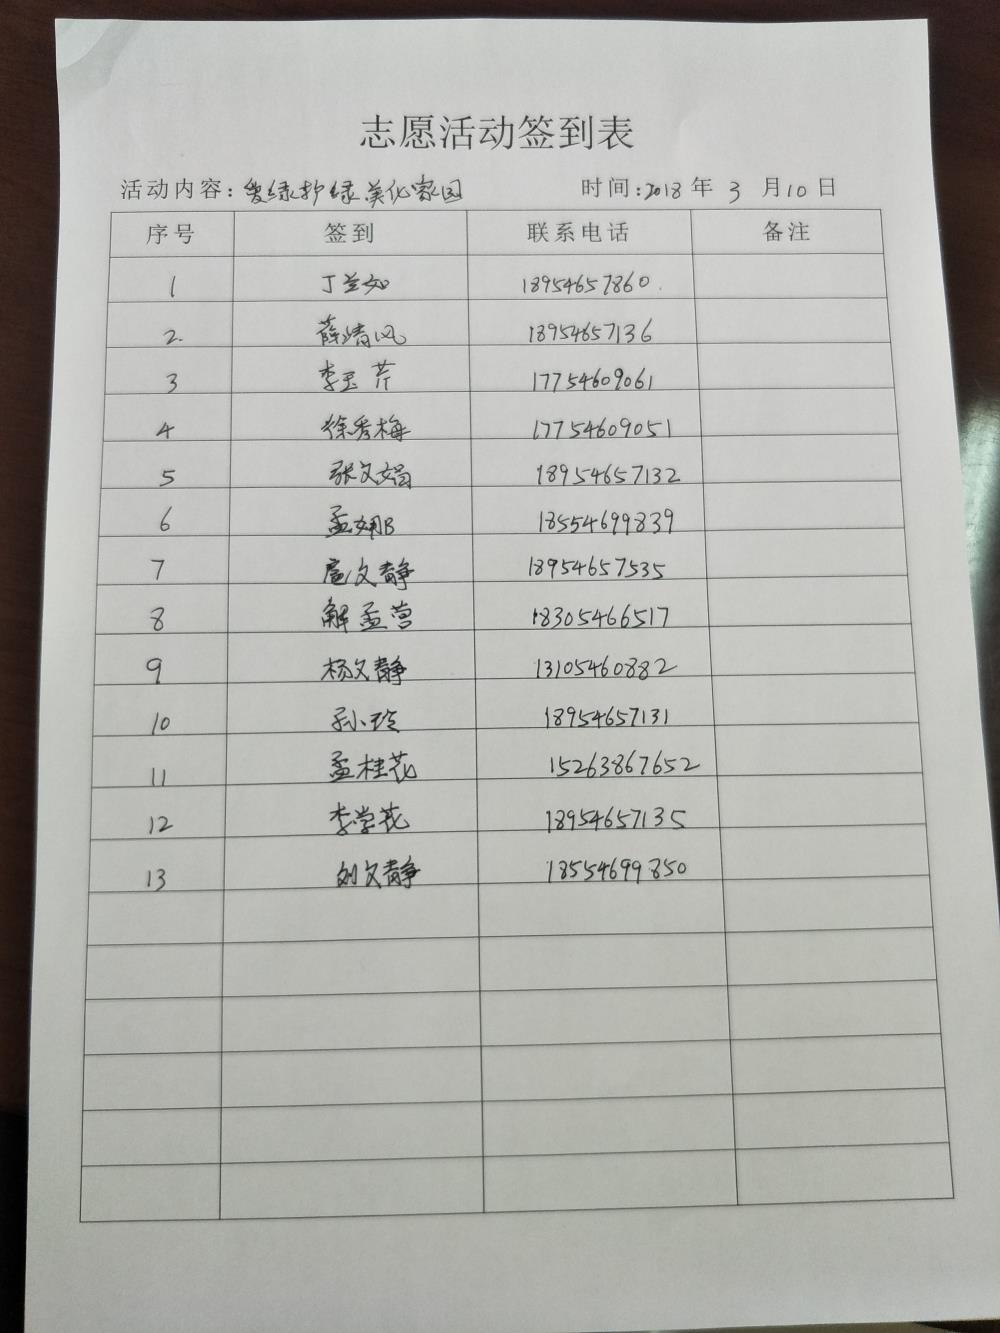 志愿活动签到表
活动内容：爱绿护绿美化家园 时间：2018年 3 月10日
序号 签到 联系电话 备注
1 丁兰如 18954657860
2. 薛清风 18954657136
3 李玉芹 17754609061
4 徐秀梅 17754609051
5 张文娟 18954657132
6 孟 18554699839
7 扈文静 18954657535
8 解孟营 18305466517
9 杨文静 13105460882
10 孙小玲 18954657131
11 孟桂花 15263867652
12 李学花 18954657135
13 刘文静 18554699850